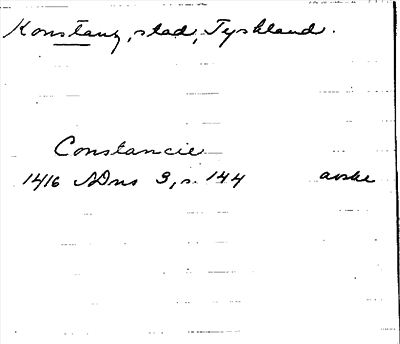 Konstanz, stad, Tyskland.
Constancie
1416 ADns 3, s. 144 avskr